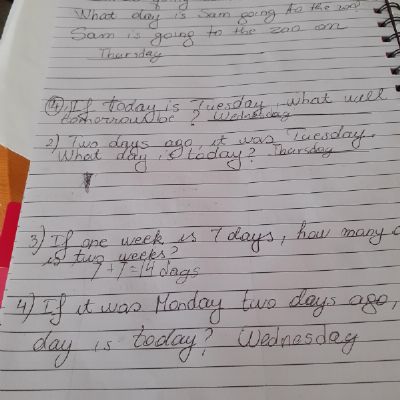 What day is Sam going to the zoo
Sam is going to the zoo on
Thursday
4) If today is Tuesday, what will
tomorrow be? Wednesday
2) Two days ago, it was Tuesday.
What day is today? Thursday
3) If one week is 7 days, how many
is two weeks?
7+7=14 days
4) If it was Monday two days ago,
day is today? Wednesday